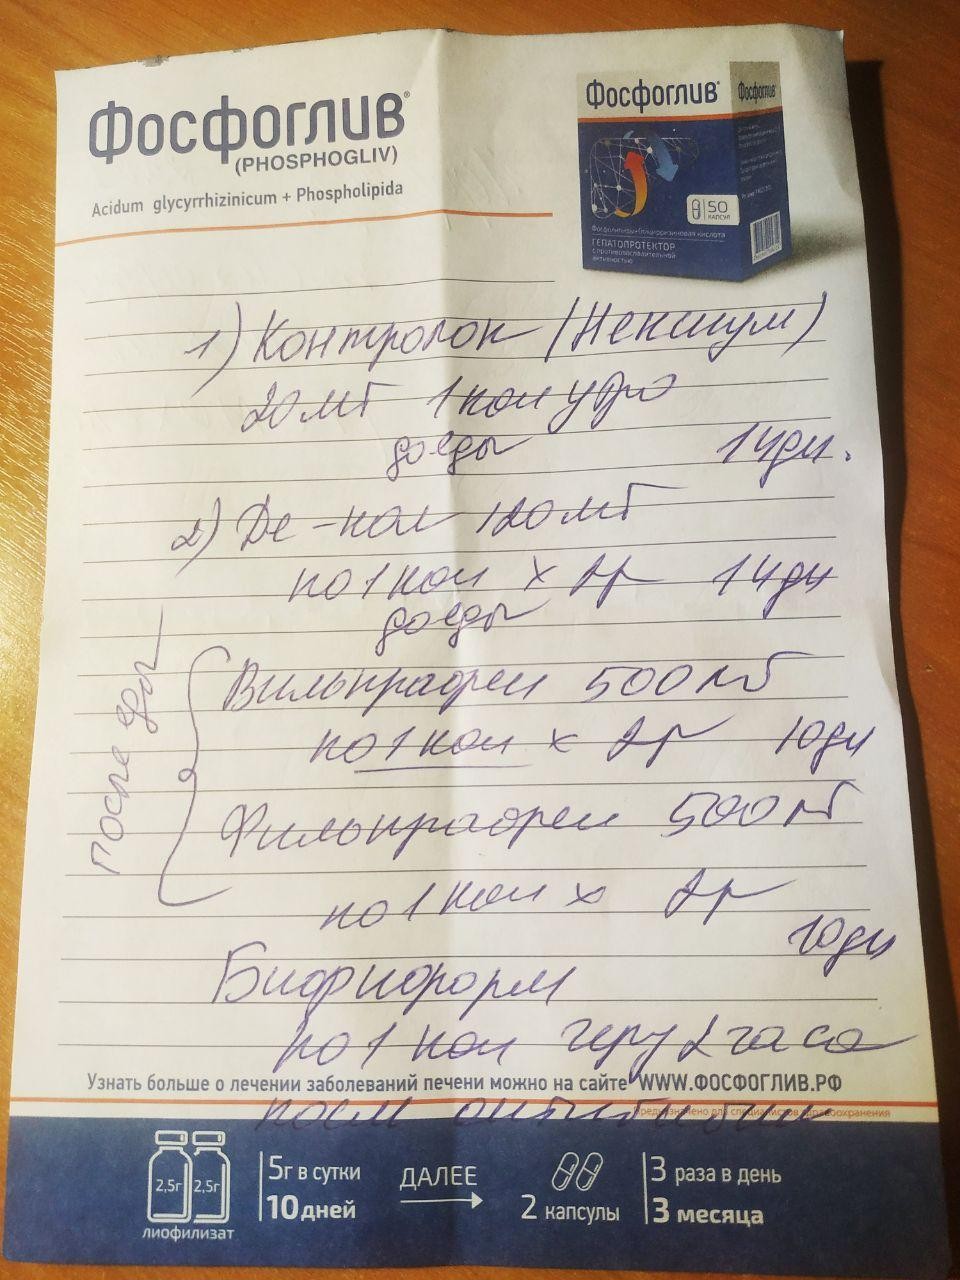 Фосфоглив®
(PHOSPHOGLIV)
Acidum glycyrrhizinicum + Phospholipida
Фосфоглив®
Фосфоглив
50
КАПСУЛ
Фосфолипиды+Глицирризиновая кислота
ГЕПАТОПРОТЕКТОР
с противовоспалительной
активностью
1) Контролок (Нексиум)
20 мг 1 кап утро
до еды 14 дн.
2) Де-нол 120 мг
по 1 кап х 2р 14 дн
до еды
После еды
Вильпрафен 500 мг
по 1 кап х 2р 10 дн
Фильпрафен 500 мг
по 1 кап х 2р
10 дн
Бифиформ
по 1 кап через 2 часа
Узнать больше о лечении заболеваний печени можно на сайте WWW.ФОСФОГЛИВ.РФ
Предназначено для специалистов здравоохранения
после
2,5г 2,5г
лиофилизат
5г в сутки
10 дней
ДАЛЕЕ
2 капсулы
3 раза в день
3 месяца